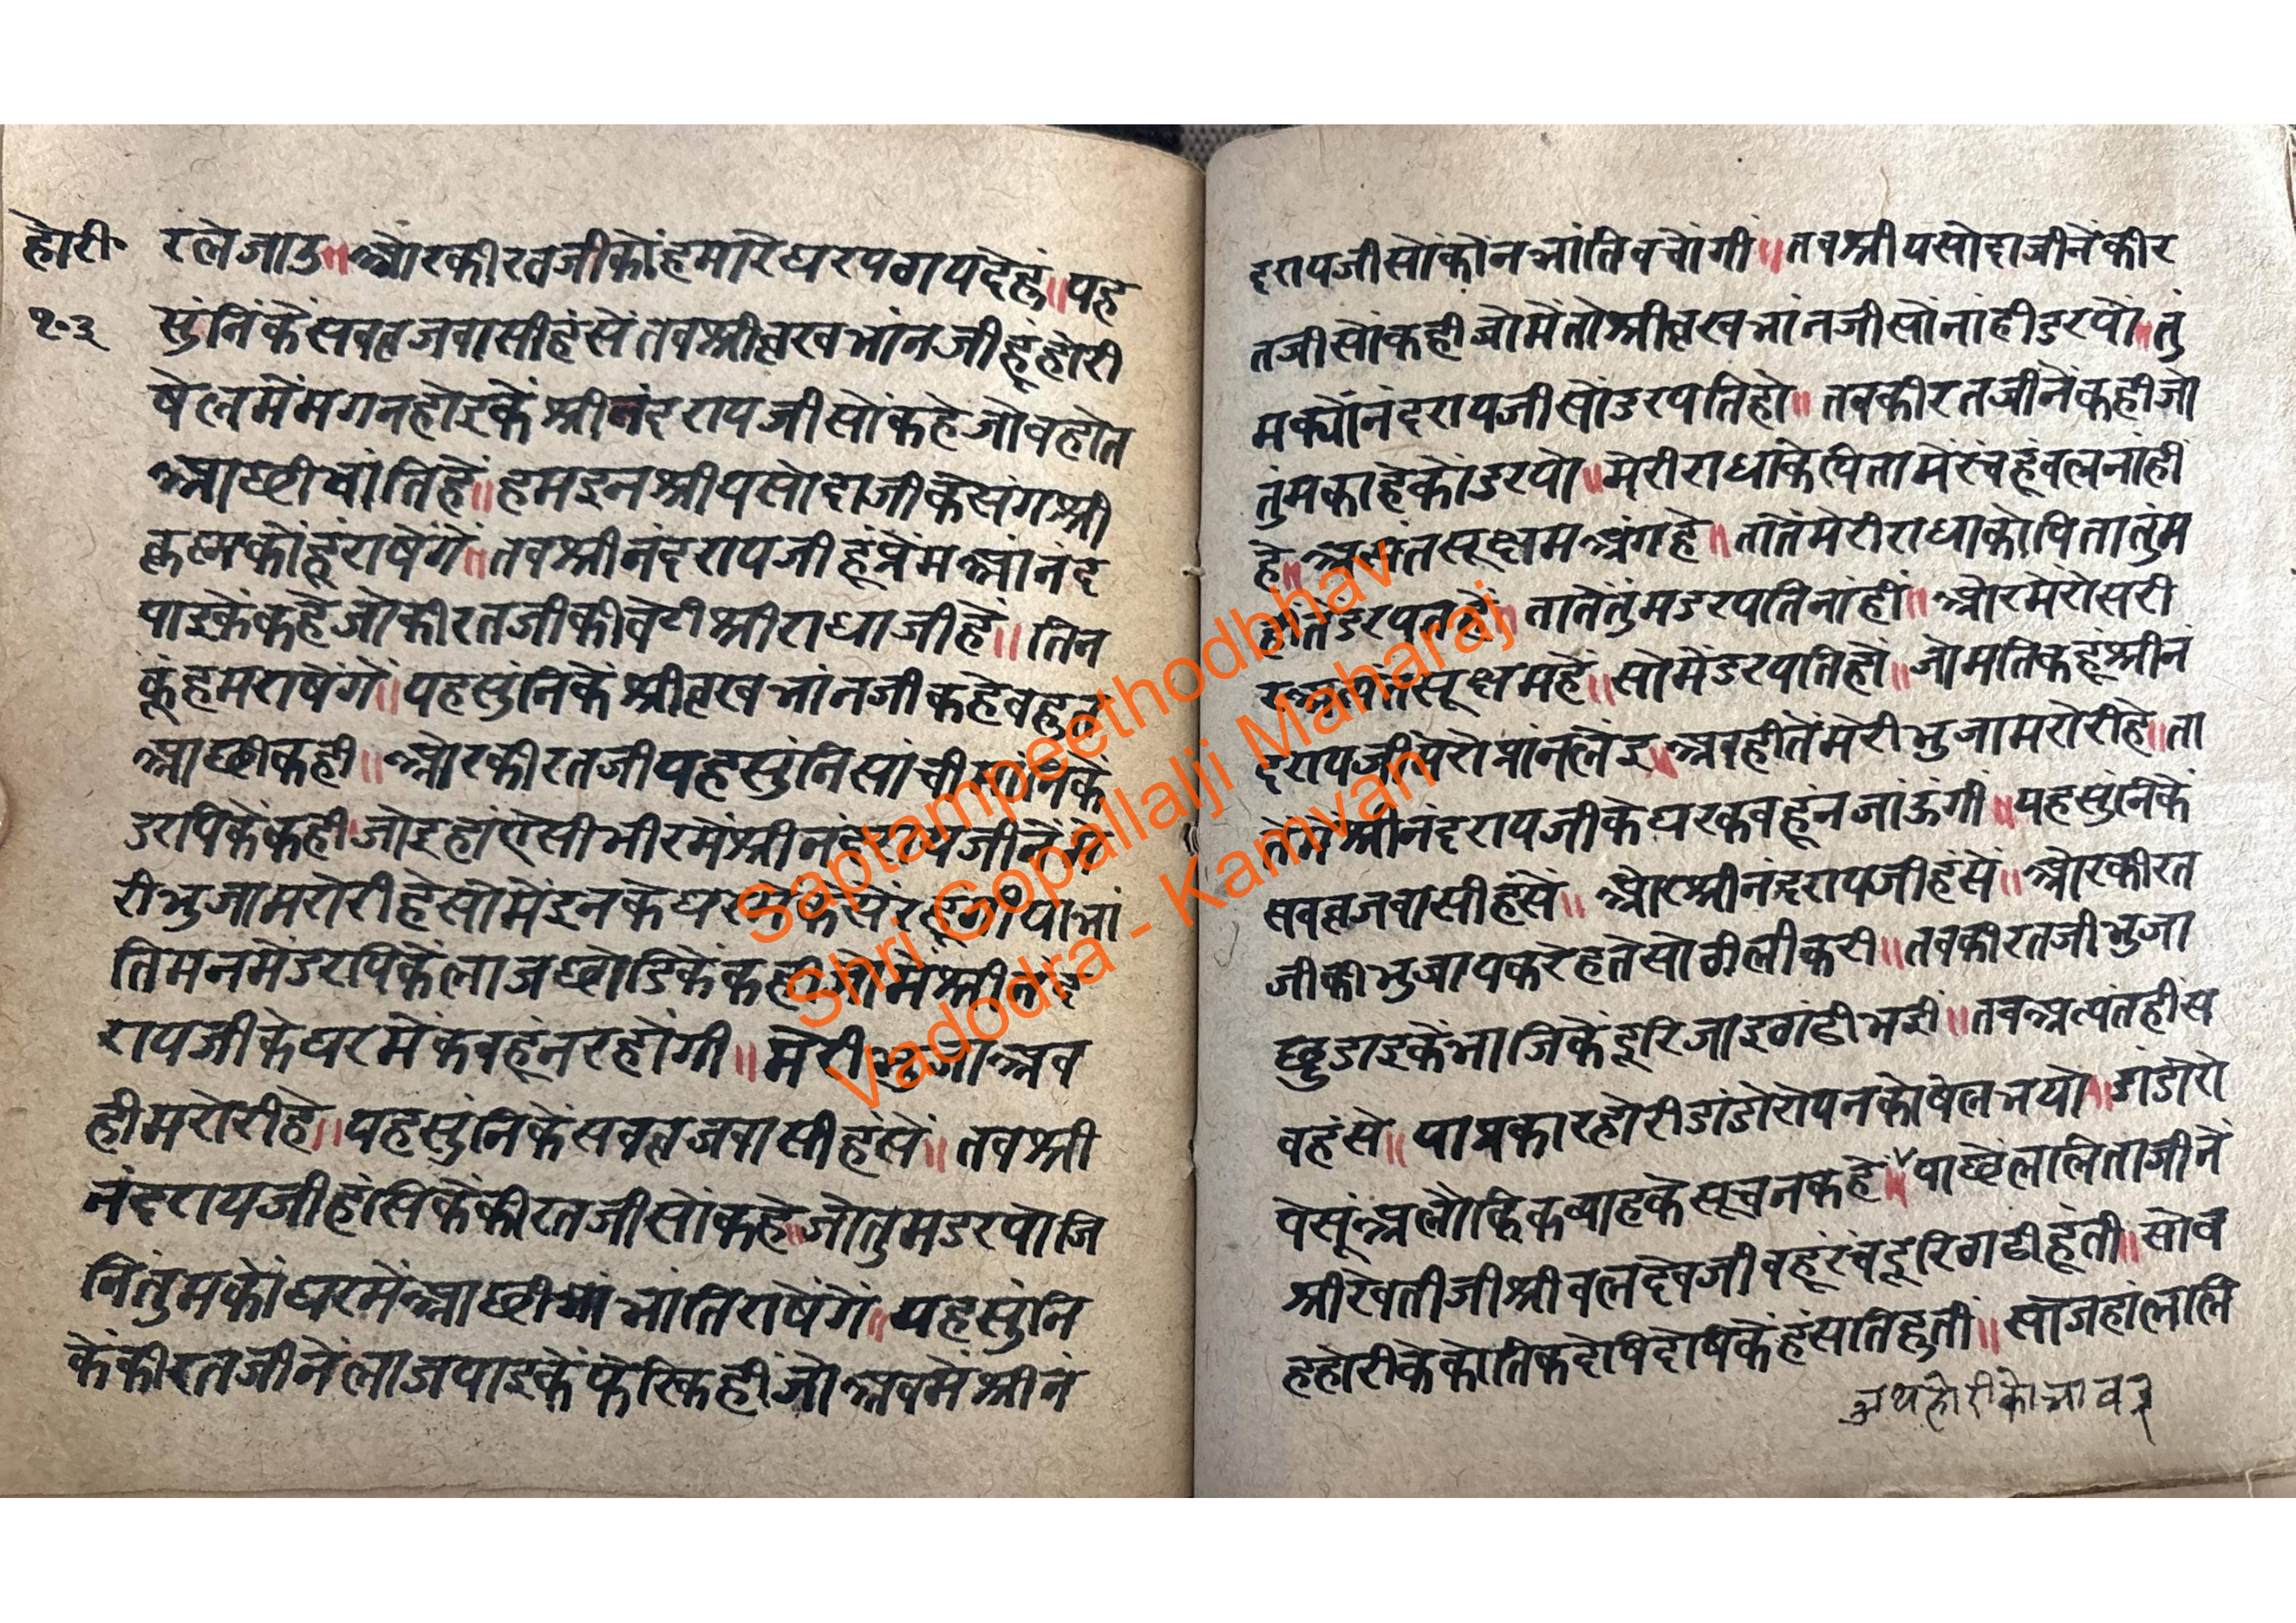 होरी॰
१॰३
रलेजाउ॥ औरकीरतजीकोंहमारेघरपठायदेहूं॥ यह
सुंनिंकेंसवव्रजवासीहंसेंतवश्रीव्रखभांनजीहूंहोरी
षेलमेंमगनहोइकेंश्रीनंदरायजीसोंकहेजोवहोत
आछीवांतिहें॥ हमइनश्रीयसोदाजीकेसंगश्री
कृष्मकोंहूंराषेंगें॥ तवश्रीनंदरायजीहूंप्रेमआंनंद
पाइकेंकहेजोकीरतजीकीवेटीश्रीराधाजीहें॥ तिन
कूंहमराषेंगें॥ यहसुंनिकेंश्रीव्रखभांनजीकहेवहुत
आछीकही॥ ओरकीरतजीयहसुंनिसांचीमांनिकें
डरपिकेंकही जोइहांऐसीभीरमेंश्रीनंदरायजीनेंमे
रीभुजामरोरीहेसोमेंइनकेघर रहूंगीयाभां
तिमनमेंडरपिकेंलाजछोडिकेंकहीजोमेंश्रीनंद
रायजीकेघरमेंकवहूंनरहोंगी॥ मेरीभुजाअव
हीमरोरीहे॥ यहसुंनिकेंसवव्रजवासीहंसें॥ तवश्री
नंदरायजीहंसिकेंकीरतजीसोंकहे॥ जोतुमडरपोजि
नितुंमकोंघरमेंआछीभांतिराषेंगें॥ यहसुंनि
केंकीरतजीनेंलाजपाइकेंफेरिकहींजोअवमेंश्रीनं
दरायजीसोंकोंनभांतिवचोंगी॥ तवश्रीयसोदाजीनेंकीर
तजीसोंकहीजोमेंतोश्रीव्रखभांनजीसोंनांहीडरपों॥ तुं
मक्योंनंदरायजीसोंडरपतिहो॥ तवकीरतजीनेंकहीजो
तुंमकाहेकोंडरपो॥ मेरीराधाकेपितामेंरंचहूंवलनांहीं
हे॥ अत्यंतसूक्षमअंगहे॥ तातेंमेरीराधाकोपितातुंम
हीतेंडरपतहें॥ तातेंतुंमडरपतिनांहीं॥ ओरमेरोसरी
रअत्यंतसूक्षमहें॥ सोमेंडरपतिहों॥ जोमतिकहूंश्रीनं
दरायजीमेरोप्रांनलेंइ॥ अवहीतेंमेरीभुजामरोरीहे॥ ता
तेमेंश्रीनंदरायजीकेघरकवहूंनजांऊंगी॥ यहसुंनिकें
सवव्रजवासीहंसें॥ औरश्रीनंदरायजीहंसें॥ ओरकीरत
जीकीभुजापकरेहतेसोढीलीकरी॥ तवकीरतजीभुजा
छुडाइकेंभाजिकेंदूरिजाइठाढीभई॥ तवअत्यंतहीस
वहंसे॥ याप्रकारहोरीडांडोरोपनकोषेलभयो॥ डांडोरो
पेसूंअलौकिकव्याहकेसूचनकहे॥ पाछेंललिताजीनें
श्रीरेवतीजीश्रीवलदेवजीवहूरंचदूरिठाढीहूंती॥ सोव
हहोरीकेकोतिकदेषिदेषिकेंहंसतिहुती॥ सोजहांललि
अथहोरीकोभाव३
Saptampeethodbhav
Shri Gopallalji Maharaj
Vadodra - Kamvan